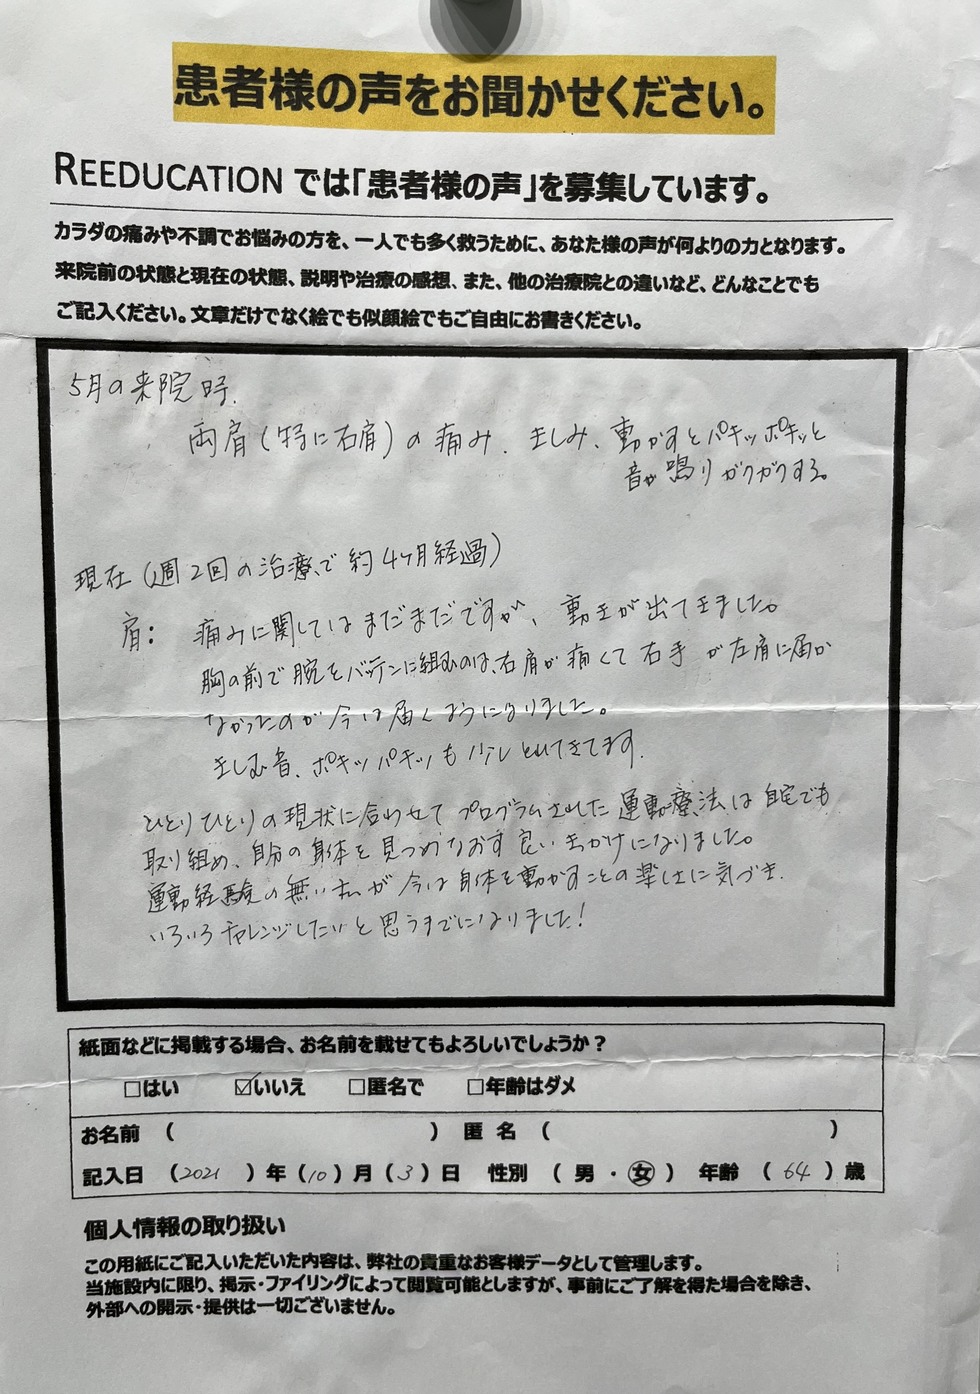 患者様の声をお聞かせください。
REEDUCATION では「患者様の声」を募集しています。
カラダの痛みや不調でお悩みの方を、一人でも多く救うために、あなた様の声が何よりの力となります。
来院前の状態と現在の状態、説明や治療の感想、また、他の治療院との違いなど、どんなことでも
ご記入ください。文章だけでなく絵でも似顔絵でもご自由にお書きください。
5月の来院時.
両肩(特に右肩)の痛み、きしみ、動かすとパキッポキッと
音が鳴りガクガクする。
現在(週2回の治療で約4ヶ月経過)
肩: 痛みに関してはまだまだですが、動きが出てきました。
胸の前で腕をバッテンに組むのは、右肩が痛くて右手が左肩に届か
なかったのが今は届くようになりました。
きしむ音、ポキッパキッも少しとれてきてます.
ひとりひとりの現状に合わせてプログラムされた運動療法は自宅でも
取り組め、自分の身体を見つめなおす良いきっかけになりました。
運動経験の無い私が今は身体を動かすことの楽しさに気づき.
いろいろチャレンジしたいと思うまでになりました!
紙面などに掲載する場合、お名前を載せてもよろしいでしょうか?
□はい ☑いいえ □匿名で □年齢はダメ
お名前 ( ) 匿名 ( )
記入日 (2021)年(10)月(3)日 性別 (男・女) 年齢 (64)歳
個人情報の取り扱い
この用紙にご記入いただいた内容は、弊社の貴重なお客様データとして管理します。
当施設内に限り、掲示・ファイリングによって閲覧可能としますが、事前にご了解を得た場合を除き、
外部への開示・提供は一切ございません。